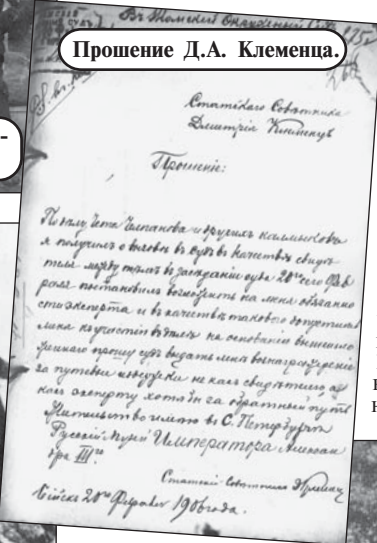 Прошение Д.А. Клеменца.
Въ Томскій Окружный
Статскаго Совѣтника
Дмитрія Клеменцъ
Прошеніе:
По дѣлу Чета Челпанова и другихъ калмыковъ
я получилъ въ судъ въ качествѣ свидѣ-
теля между тѣмъ въ засѣданіи суда 20го сего Фев
раля постановилъ возложить на меня обязанно
сти эксперта и въ качествѣ такового допустилъ
меня къ участію въ дѣлѣ на основаніи вышеизло
женнаго прошу судъ выдать мнѣ вознагражденіе
за путевыя издержки не какъ свидѣтелю, а
какъ эксперту хотя бы за обратный путь
Жительство имѣю въ С. Петербургѣ
Русскій Музей Императора Алексан
дра IIIго.
Статскій Совѣтникъ Д Клеменц
Бійскъ 20го Февраля 1906 года.